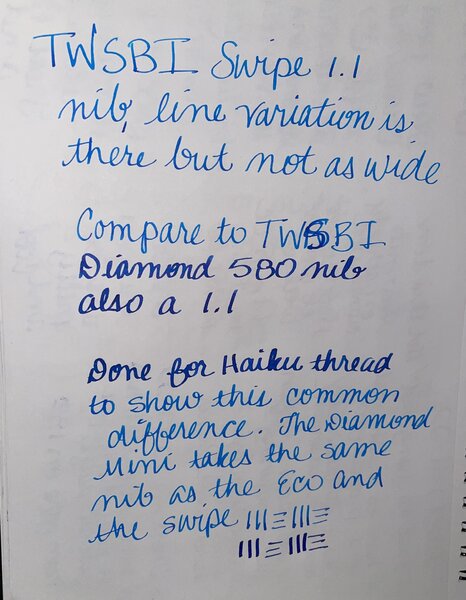 TWSBI Swipe 1.1
nib, line variation is
there but not as wide
Compare to TWSBI
Diamond 580 nib
also a 1.1
Done for Haiku thread
to show this common
difference. The Diamond
Mini takes the same
nib as the Eco and
the swipe